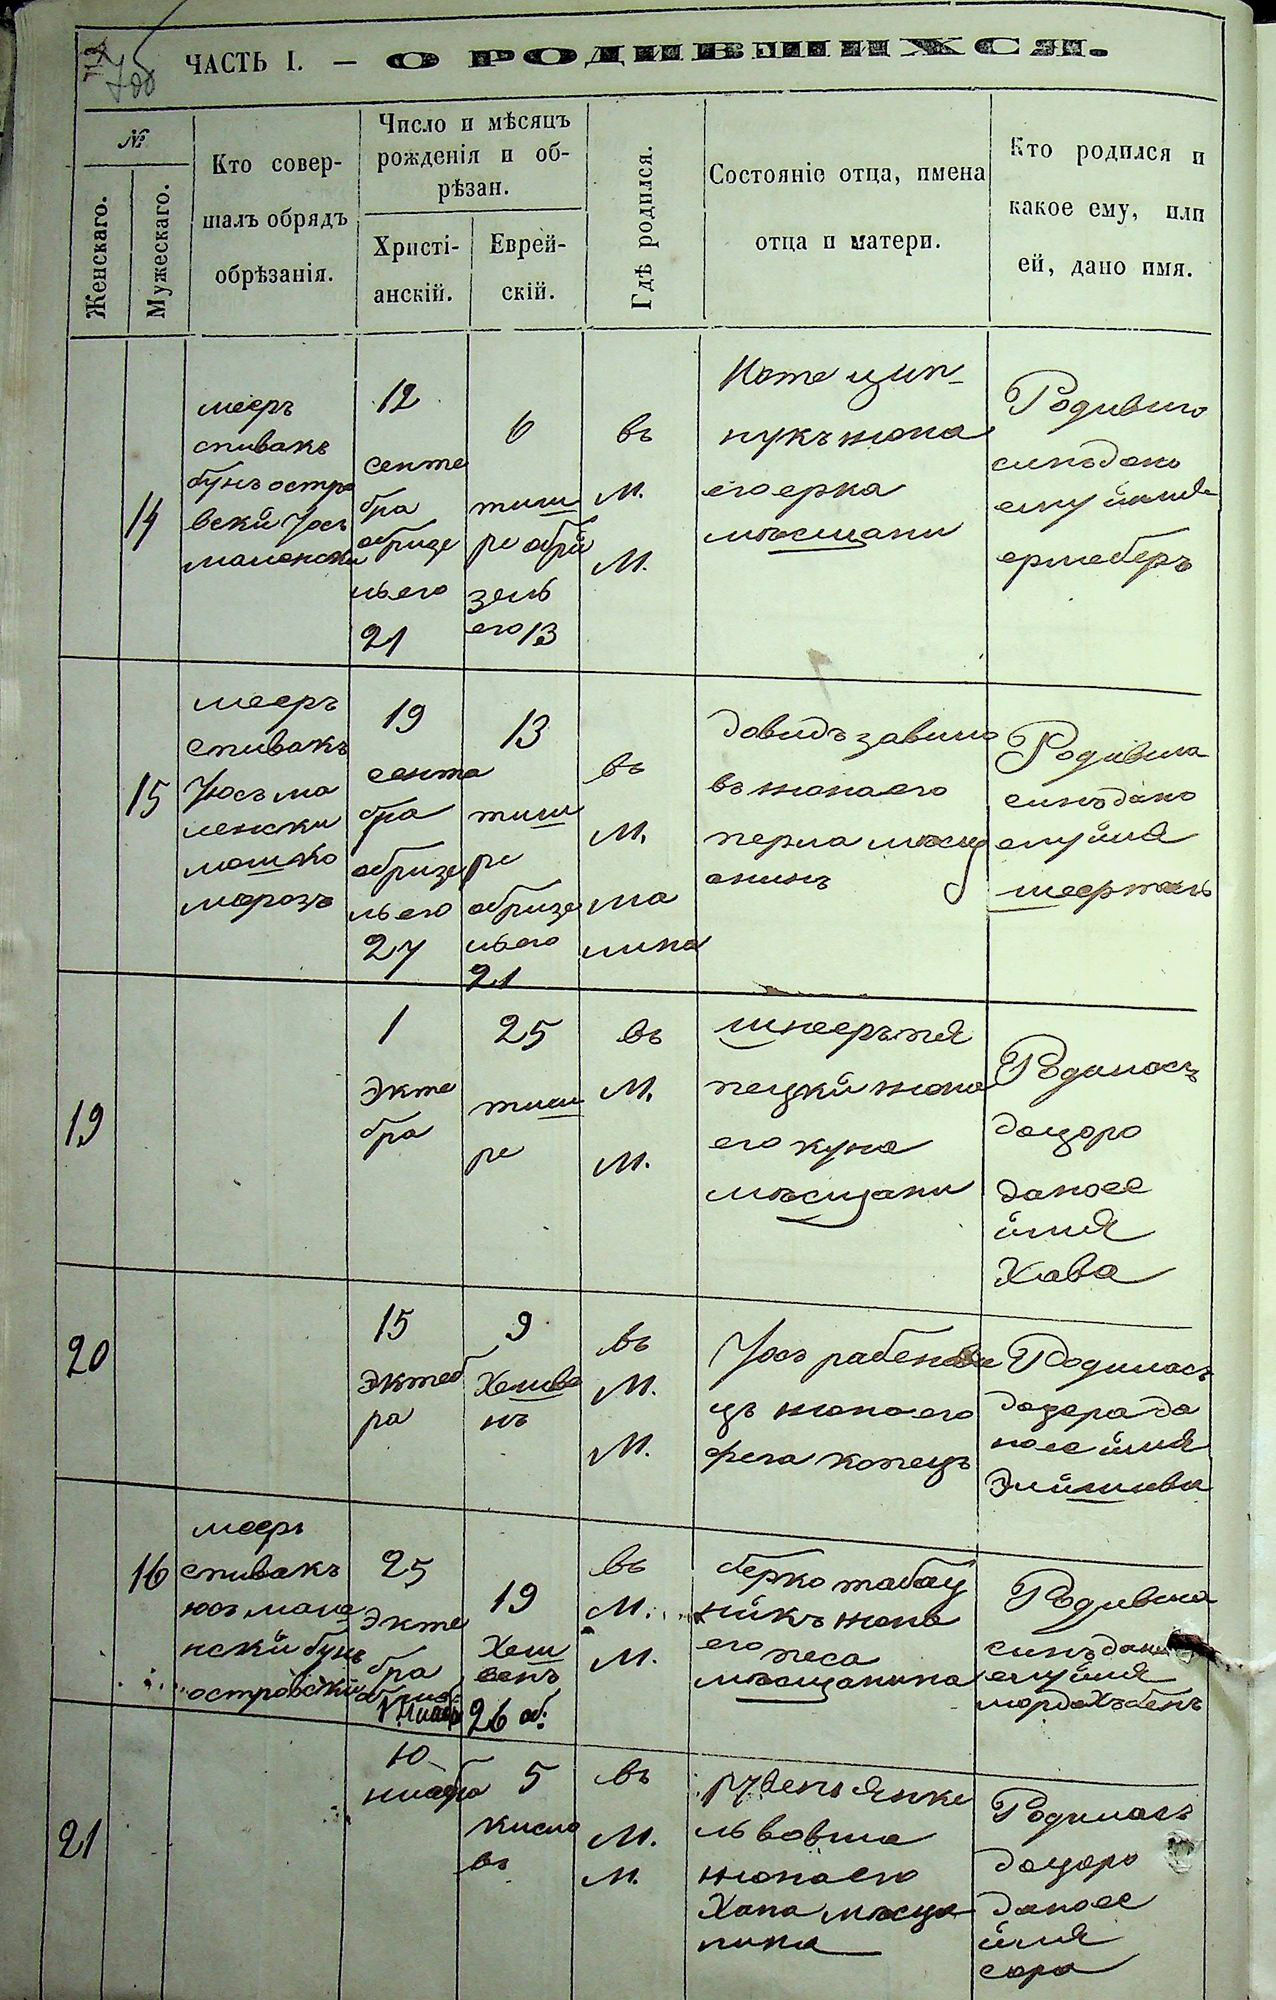 ЧАСТЬ I. — О РОДИВШИХСЯ.
№
Женскаго.
Мужескаго.
Кто совер-
шалъ обрядъ
обрѣзанія.
Число и мѣсяцъ
рожденія и об-
рѣзан.
Христі-
анскій.
Еврей-
скій.
Гдѣ родился.
Состояніе отца, имена
отца и матери.
Кто родился и
какое ему, или
ей, дано имя.
14
мееръ
спивакъ
бунъ остро
вскй Уосъ
12
сенте
бра
обризе
ньего
21
6
тиш
ре обри
зень
его 13
въ
М.
М.
пукъ жона
его ерка
мъсщани
Родився
синъ дано
ему ймя
ершеберъ
15
мееръ
спивакъ
Уюсъ ма
ленски
мошко
морозъ
19
сента
бра
обризе
нь его
27
13
тиш
ре
обризе
ньего
21
въ
М.
ма
лина
довидъ завило
въ жона его
перла мъсщ
анинъ
Родився
синъ дано
ему ймя
19
1
Эктe
бра
25
тиш
ре
въ
М.
М.
шнееръ пя
тецкй жона
его куна
мъсщани
Родилась
доцоро
даноее
ймя
Хава
20
15
Эктеб
ра
9
Хешве
нъ
въ
М.
М.
цъ жона его
фега копецъ
Родилась
доцера да
ноее ймя
Элйшева
16
мееръ
спивакъ
юсъ мале
нскй бунъ
островскй
25
Экте
бра
19
Хеш
венъ
26 об:
въ
М.
М.
берко табач
нйкъ жона
его песа
мъсщанина
Родився
синъ дано
ему ймя
21
10
ноябра
5
кисле
въ
въ
М.
М.
рувенъ Янке
львовша
жона его
Хана мъсща
нина
Родилась
доцоро
даноее
ймя
сора